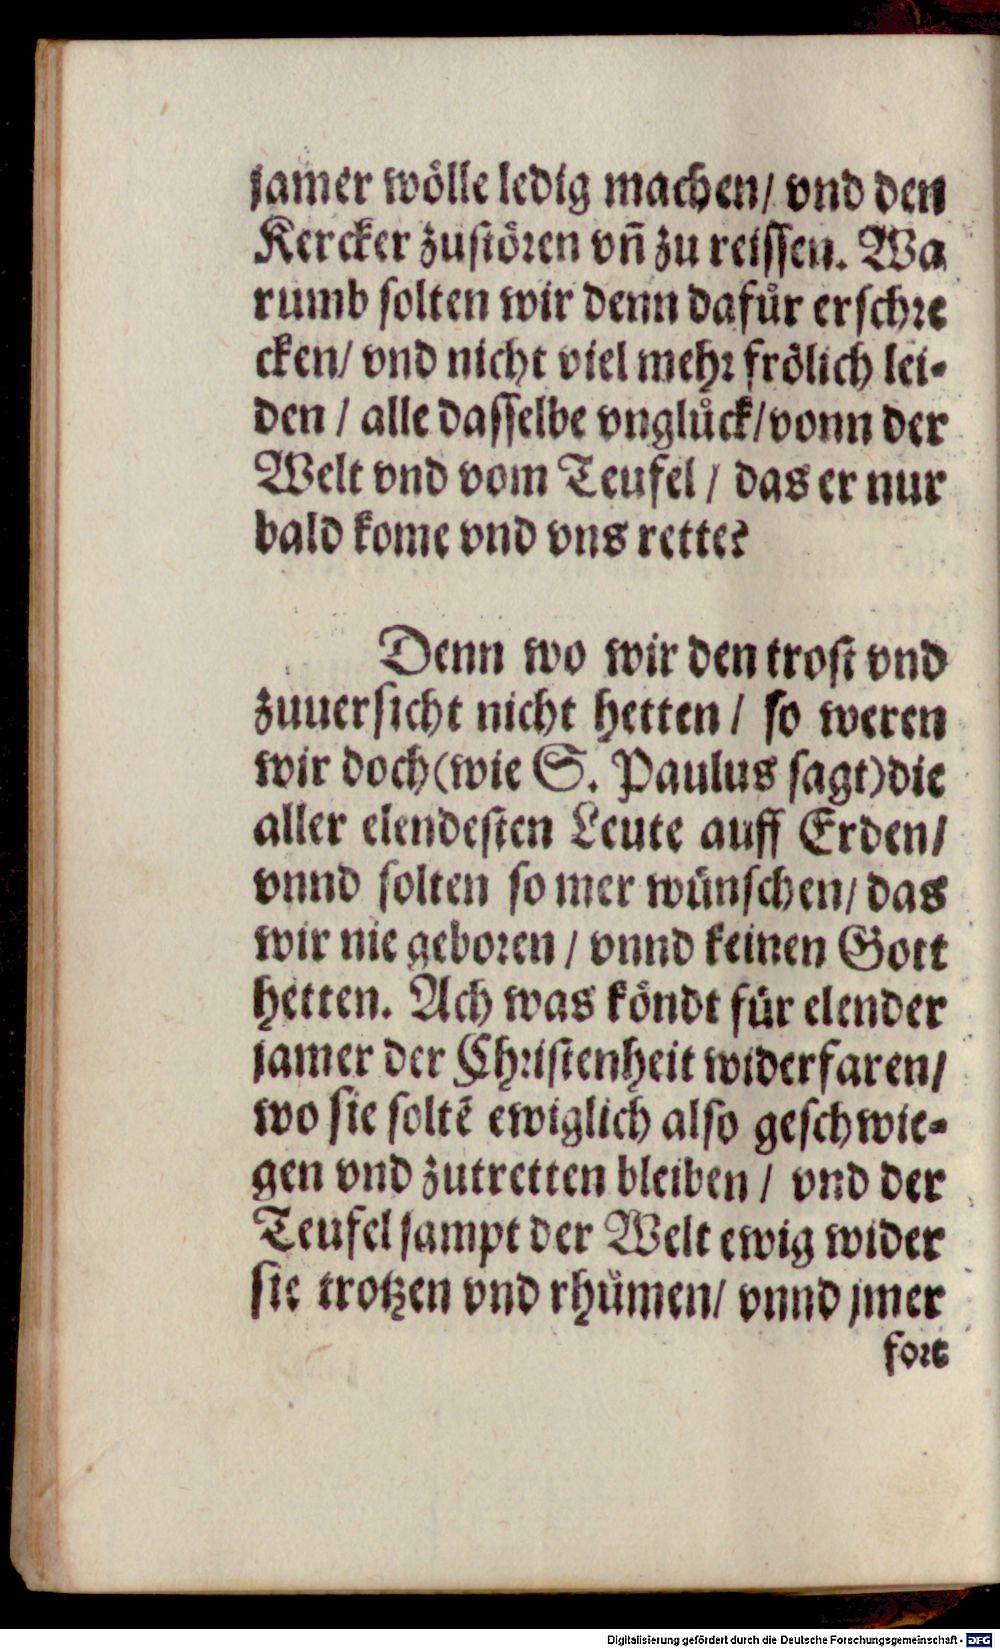 jamer wölle ledig machen/ vnd den
Kercker zustören vñ zu reissen. Wa
rumb solten wir denn dafür erschre
cken/ vnd nicht viel mehr frölich lei-
den / alle dasselbe vnglück/vonn der
Welt vnd vom Teufel / das er nur
bald kome vnd vns rette?
Denn wo wir den trost vnd
zuuersicht nicht hetten / so weren
wir doch(wie S. Paulus sagt)die
aller elendesten Leute auff Erden/
vnnd solten so mer wünschen/ das
wir nie geboren / vnnd keinen Gott
hetten. Ach was köndt für elender
jamer der Christenheit widerfaren/
wo sie soltē ewiglich also geschwie-
gen vnd zutretten bleiben / vnd der
Teufel sampt der Welt ewig wider
sie trotzen vnd rhümen/ vnnd jmer
fort
Digitalisierung gefördert durch die Deutsche Forschungsgemeinschaft - DFG